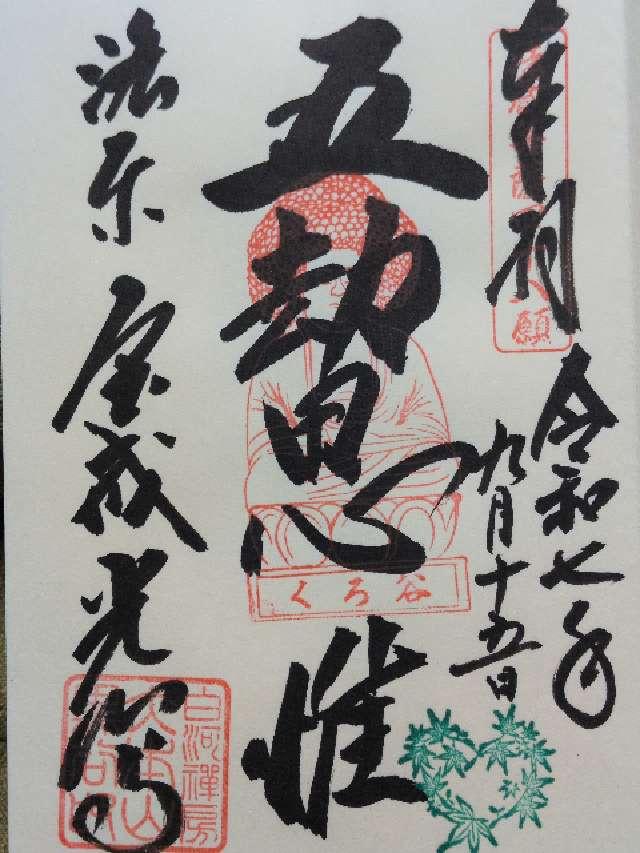 奉拝
令和七年
九月十五日
五劫思惟
くろ谷
洛京 金戒光明寺
白河禅房
願